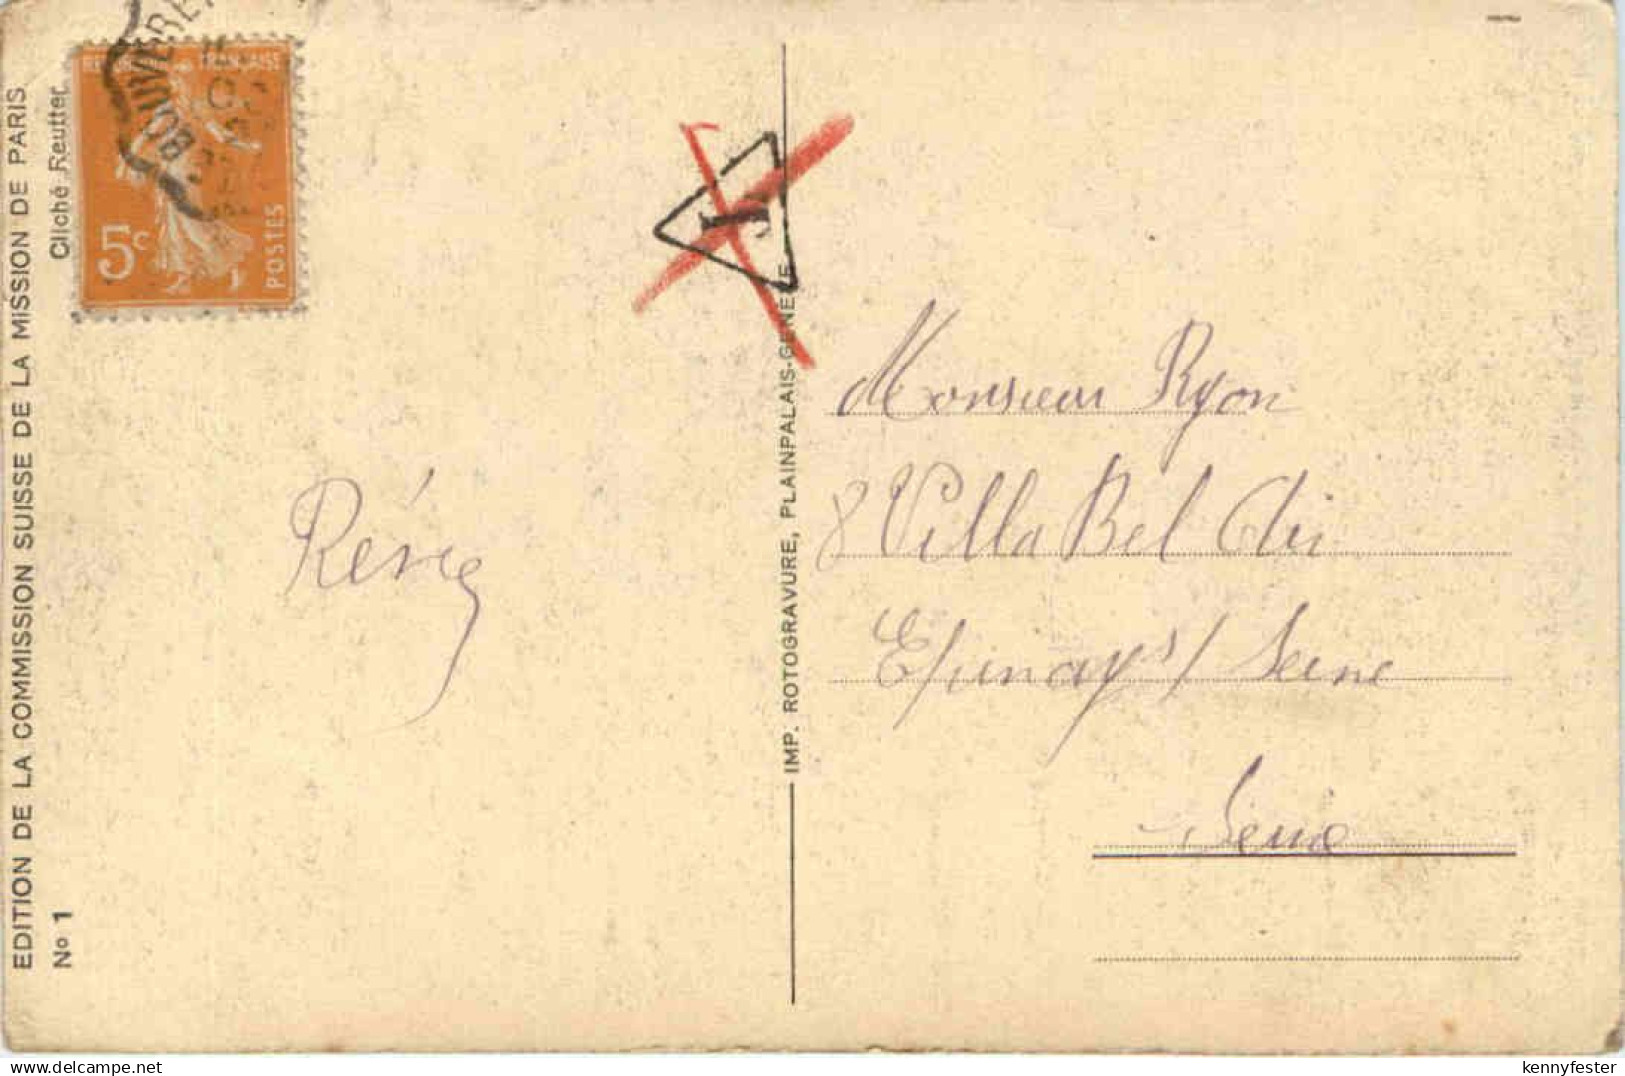 EDITION DE LA COMMISSION SUISSE DE LA MISSION DE PARIS
Cliché Reutter
No 1
FRANÇAISE
5c
POSTES
BOUVERE
T
IMP. ROTOGRAVURE, PLAINPALAIS-GENÈVE
Monsieur Ryon
8 Villa Bel Air
Epinay s/ Seine
Seine
delcampe.net
kennyfester